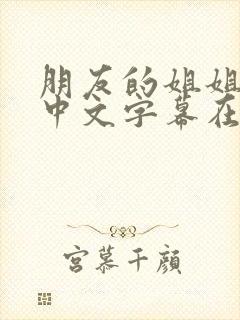 朋友的姐姐
中文字幕在
宫慕千颜